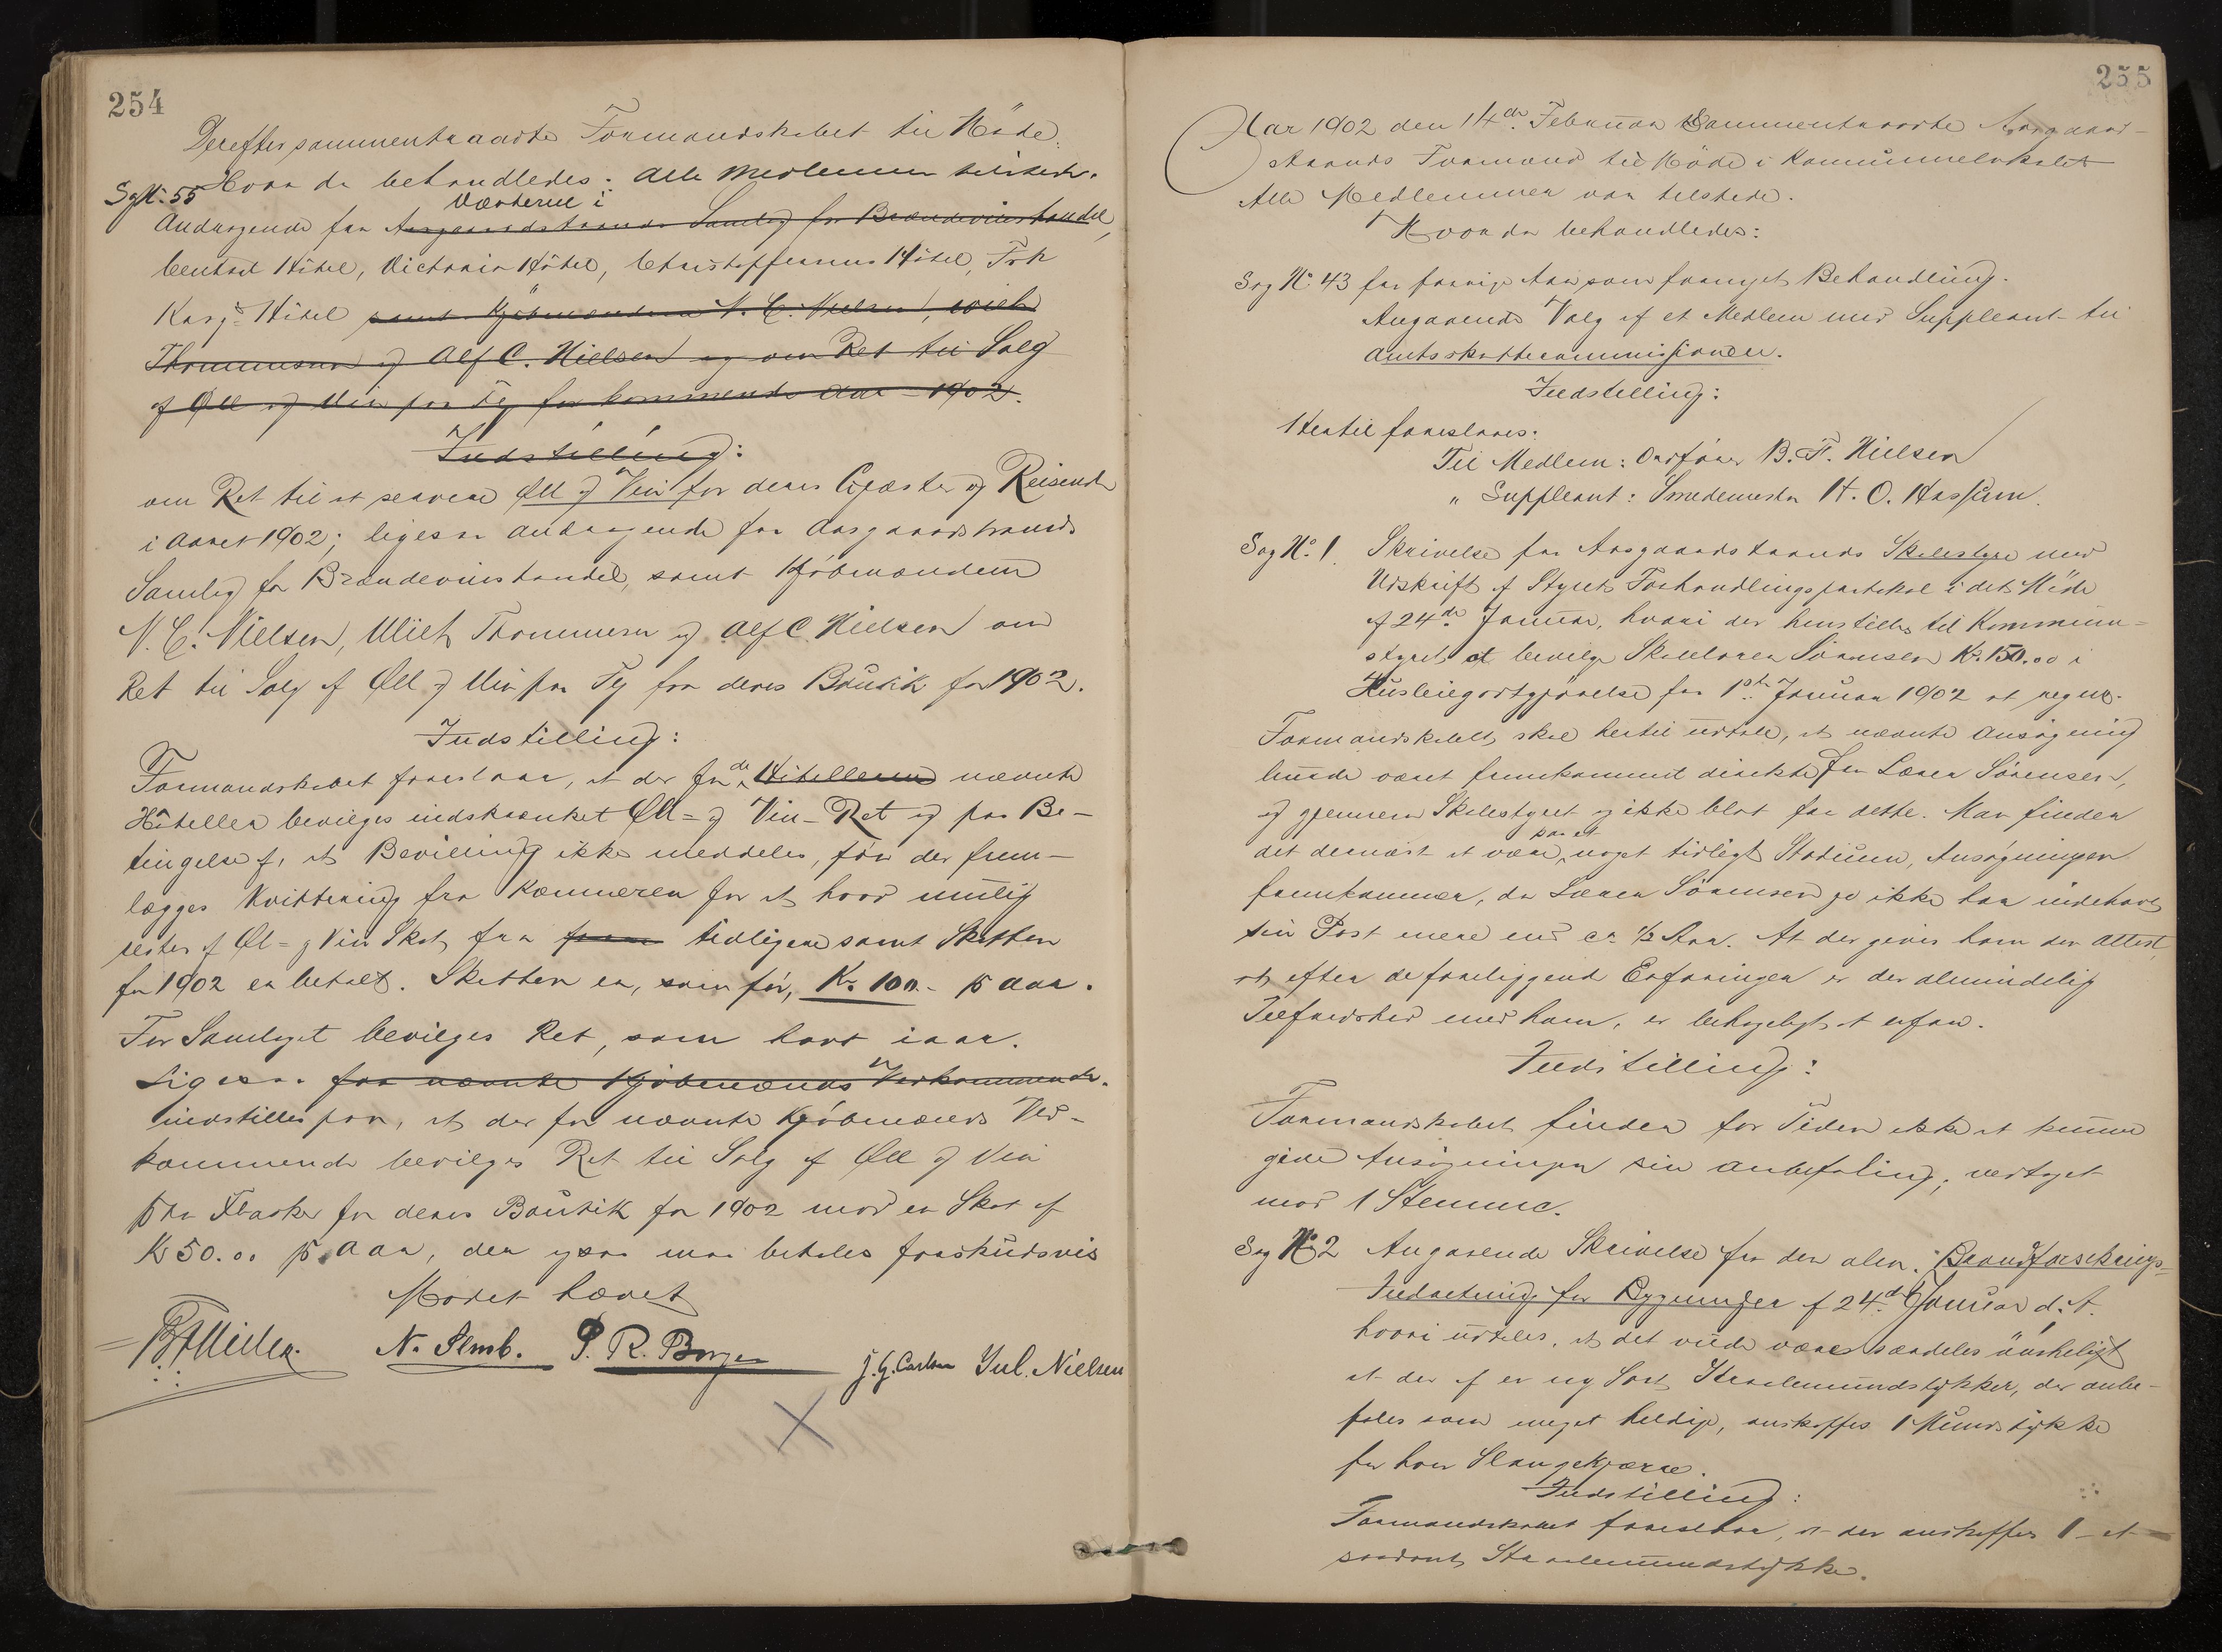 254
Derefter sammentraadte Formandskabet til Möde.
Hvor da behandledes: Alle Medlemmer tilstede.
Sag N: 55
Værterne i
Andragende fra Aasgaardstrands Samlag for Brændevinshandel,
Central Hôtel, Victoria Hôtel, Christoffersens Hôtel, Frk
Hôtel samt Kjöbmændene N. C. Nielsen, Ulich
Thommesen og Alf C. Nielsen og om Ret til Salg
af Øll og Vin paa Fl for kommende Aar – 1902.
Indstilling:
om Ret til at servere Øll og Vin for deres Gjæster og Reisende
i Aaret 1902; ligesaa Andragende fra Aasgaardstrands
Samlag for Brændevinshandel, samt Kjöbmændene
N. C. Nielsen, Ulich Thommesen og Alf C. Nielsen om
Ret til Salg af Øll og Vin paa Fl fra deres Boutik for 1902.
Indstilling:
Formandskabet foreslaar, at der for de Hôtellerne nævnte
Hôteller bevilges indskrænket Øll- og Vin-Ret og paa Be-
tingelse af, at Bevilling ikke meddeles, før der frem-
lægges Kvittering fra Kæmneren for at hvad mulig
rester af Øl- og Vin Skat fra tidligere samt Skatten
for 1902 er betalt. Skatten er, som før, Kr. 100.- p Aar.
For Samlaget bevilges Ret, som havt iaar.
Ligesaa for nævnte Kjöbmænds Vedkommende.
indstilles paa, at der for nævnte Kjöbmænds Ved-
kommende bevilges Ret til Salg af Øll og Vin
paa Flasker fra deres Boutik for 1902 mod en Skat af
Kr 50.00 p. Aar, der ogsaa maa betales forskudsvis
Mödet hævet
B. F. Nielsen. N. Slmb. P. R. Borgen J. G. Carlsen Jul. Nielsen
255
Aar 1902 den 14de Februar Sammentraadte Aasgaard-
strands Formand til Möde i Kommunelokalet
Alle Medlemmer var tilstede.
Hvor da behandledes:
Sag No. 43 for forrige Aar som fremgit Behandling.
Angaaende Valg af et Medlem med Suppleant til
Amtsskattecommissionen.
Indstilling:
Hertil foreslaaes:
Til Medlem: Ordfører B. F. Nielsen
" Suppleant: Smedemester H. O. Hassum.
Sag No. 1. Skrivelse fra Aasgaardstrands Skolestyre med
Udskrift af Styrets Forhandlingsprotokol i det Möde
af 24de Januar, hvori der henstilles til Kommune-
styret at bevilge Skolelærer Sörensen Kr. 150.00 i
Husleiegodtgjörelse fra 1ste Januar 1902 at regne.
Formandskabet skal hertil udtale, at nævnte Ansögning
burde været fremkommet direkte fra Lærer Sörensen,
og gjennem Skolestyret og ikke blot fra dette. Man finder
paa et
det dernæst at være noget tidligt Stadium, Ansögningen
fremkommer, da Lærer Sörensen jo ikke har indehavt
sin Post mere end ca. 1/2 Aar. At der gives ham den Attest,
at, efter de foreliggende Erfaringer er der almindelig
Tilfredshed med ham, er behageligt at erfare.
Indstilling:
Formandskabet finder for Tiden ikke at kunne
give Ansögningen sin Anbefaling; vedtaget
mod 1 Stemme.
Sag No 2 Angaaende Skrivelse fra den alm. Brandforsikrings-
Indretning for Bygninger af 24de Januar d. A.
hvori udtales, at det vilde være særdeles önskeligt
at der af en ny Sort Straalemundstykker, der anbe-
fales som meget heldige, anskaffes 1 Mundstykke
for hver Slangekjærre.
Indstilling:
Formandskabet foreslaar, at der anskaffes 1 – et –
saadant Straalemundstykke.